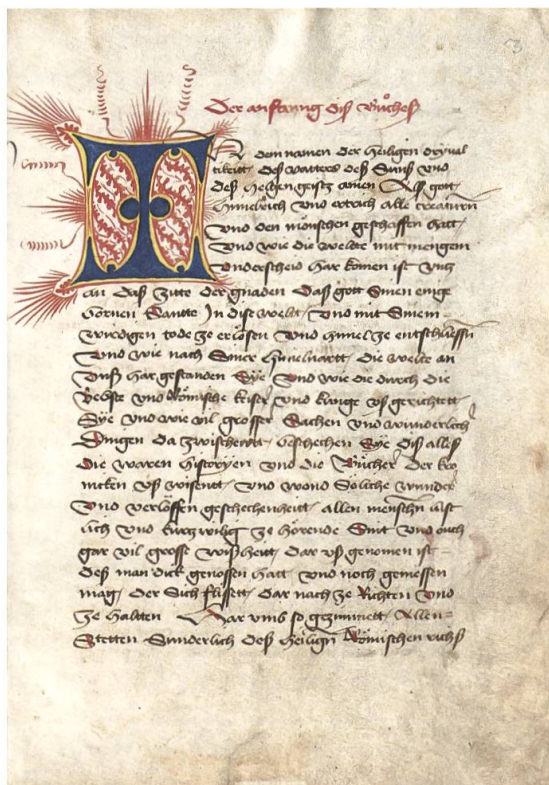 3
Der anfanng diß Bůches
IN dem namen der heiligen dryual
tikeitt deß vatters deß Suns vnd
deß heilgen geistz amen Als gott
himelrich vnd ertrich alle creaturen
vnd den mönschen geschaffen hatt
vnd wie die weldte mit mengem
vnderscheid har komen ist vntz
an daß Zitte der gnaden daß gott Sinen einige
bornen Sante In dise welt vnd mit Sinem
wirdigen tode ze erlösen vnd himel ze entschliessen
vnd wie nach Siner himeluartt die welte an
vnß har gestanden Sye vnd wie die durch die
Bebste vnd Römische keiser vnd künge vß gerichtett
Sye vnd wie vil grosser Sachen vnd wunderlicher
Dingen da zwischentt beschechen Sye diß alles
die waren historyen vnd die Bücher der kro
nicken vß wisentt vnd wond Söliche wunder
vnd verlöffen geschechenheitt allen menschen lust
lich vnd kurtzwilig ze hörende Sint vnd ouch
gar vil grosse wißheitt dar vß genomen ist
deß man dick genossen hatt vnd noch geniessen
mag der Sich flissett dar nach ze Richten vnd
ze haltten Dar vmb so gezimmett Allen
Stetten Sunderlich deß heiligen Römischen richs